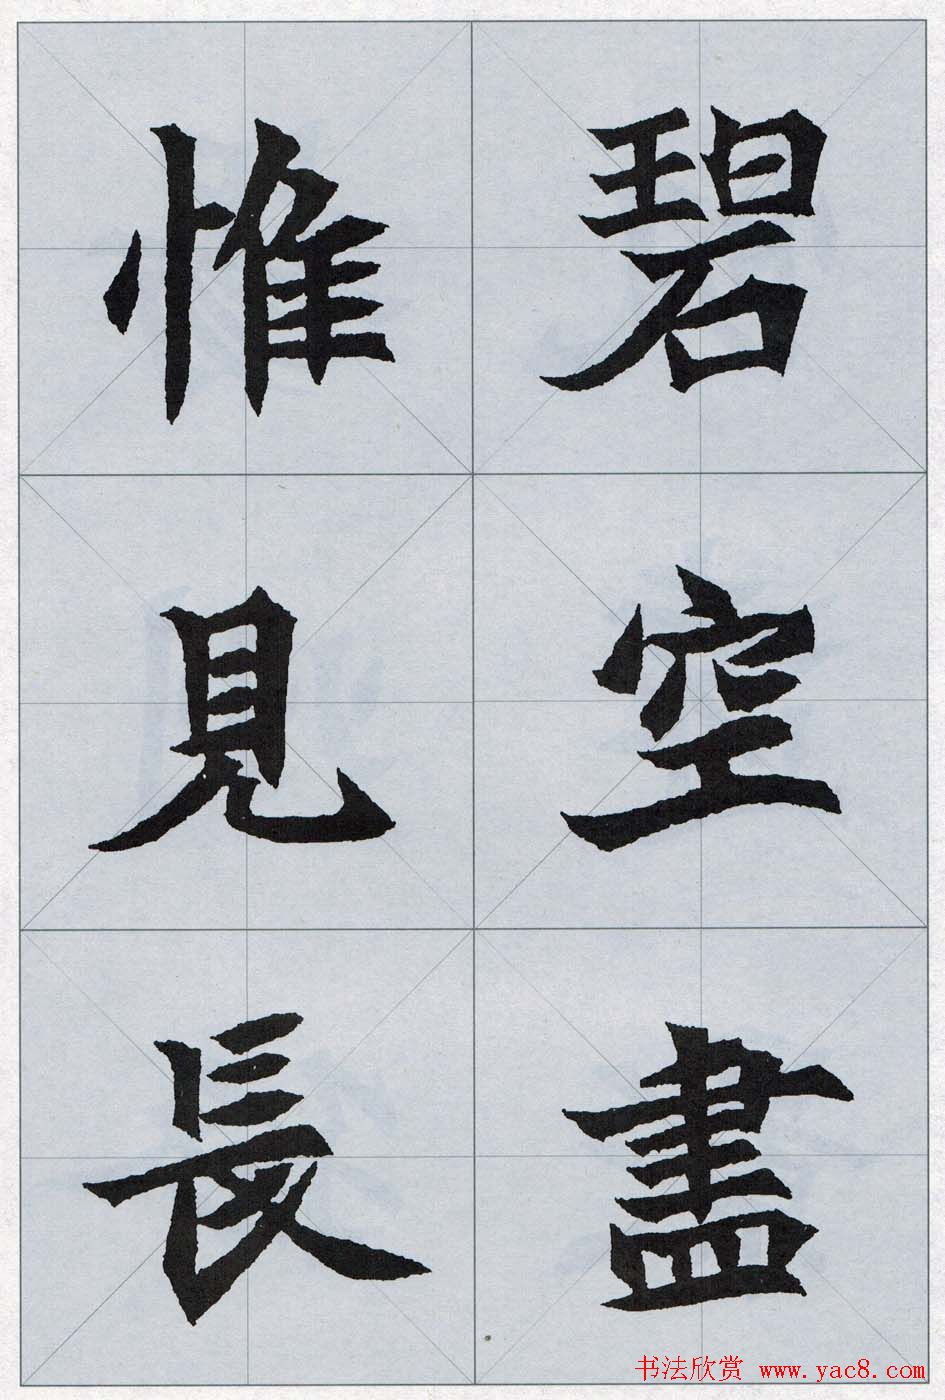 碧空盡
惟見長
书法欣赏 www.yac8.com